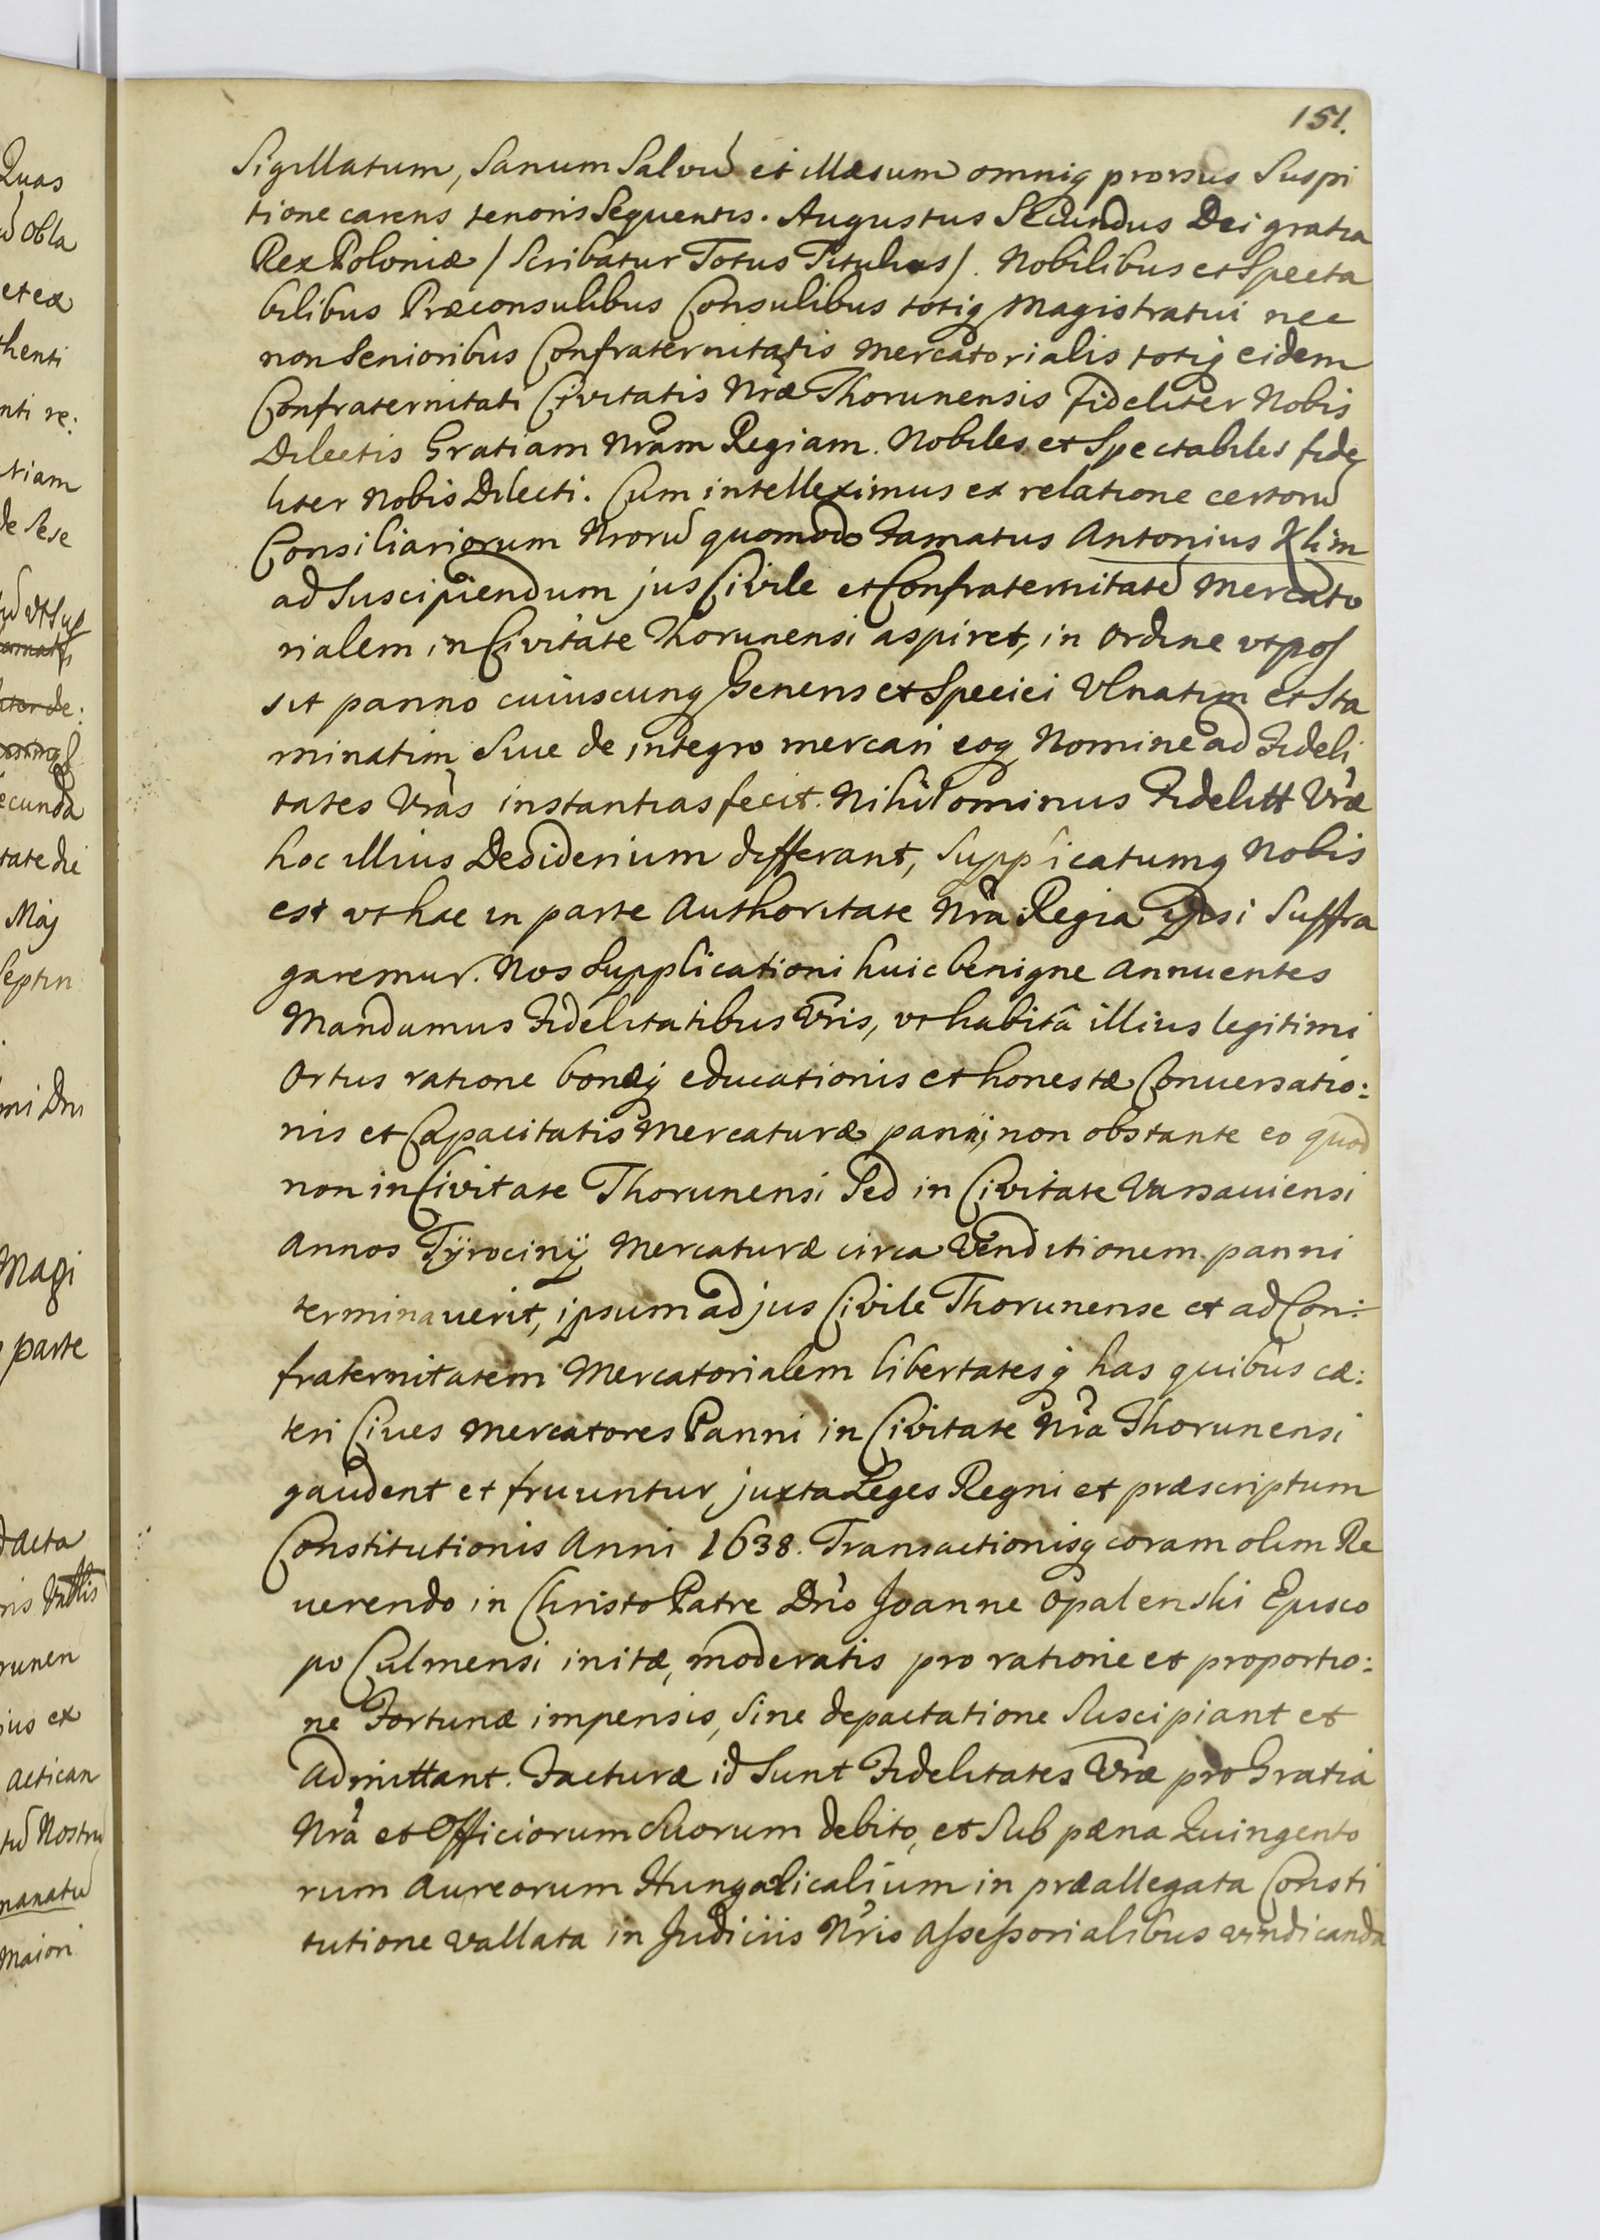 151.
Sigillatum, Sanum Salvũ et illæsum omniq prorsus Suspi
tione carens tenoris Sequentis. Augustus Secundus Dei gratia
Rex Poloniæ / Scribatur Totus Titulus /. Nobilibus et Specta
bilibus Præconsulibus Consulibus totiq Magistratui nec
non Senioribus Confraternitatis Mercatorialis totiq eidem
Confraternitati Civitatis Nræ Thorunensis fideliter Nobis
Dilectis Gratiam Nram Regiam. Nobiles et Spectabiles fide
liter Nobis Dilecti. Cum intelleximus ex relatione certorũ
Consiliariorum Nrorũ quomodo Famatus Antonius Klim
ad Suscipiendum jus Civile et Confraternitatẽ Mercato
rialem in Civitate Thorunensi aspiret, in Ordine vt pos
sit panno cuiuscunq Generis et Speciei Vlnatim et Sta
minatim Siue de integro mercari eoq Nomine ad Fideli
tates Vras instantias fecit. Nihilominus Fidelitt Vræ
hoc illius Desiderium differant, Supplicatumq Nobis
est vt hac in parte Authoritate Nra Regia ipsi Suffra
garemur. Nos Supplicationi huic benigne Annuentes
Mandamus Fidelitatibus Vris, vt habitâ illius legitimi
Ortus ratione bonæq educationis et honestæ Conuersatio:
nis et Capacitatis Mercaturæ panni, non obstante eo quod
non in Civitate Thorunensi Sed in Civitate Varsauiensi
Annos Tÿrocinÿ Mercaturæ circa Venditionem panni
terminauerit, ipsum ad jus Civile Thorunense et ad Con:
fraternitatem Mercatorialem libertatesq has quibus cæ:
teri Ciues Mercatores Panni in Civitate Nra Thorunensi
gaudent et fruuntur, juxta Leges Regni et præscriptum
Constitutionis Anni 1638. Transactionisq coram olim Re
uerendo in Christo Patre Dño Joanne Opalenski Episco
po Culmensi initæ, moderatis pro ratione et proportio:
ne Fortunæ impensis, Sine depactatione Suscipiant et
Admittant. Facturæ id Sunt Fidelitates Vræ pro Gratia
Nra et Officiorum Suorum debito, et Sub pæna Quingento
rum Aureorum Hungaricalium in præallegata Consti
tutione vallata in Judiciis Nris Assessorialibus vindicanda